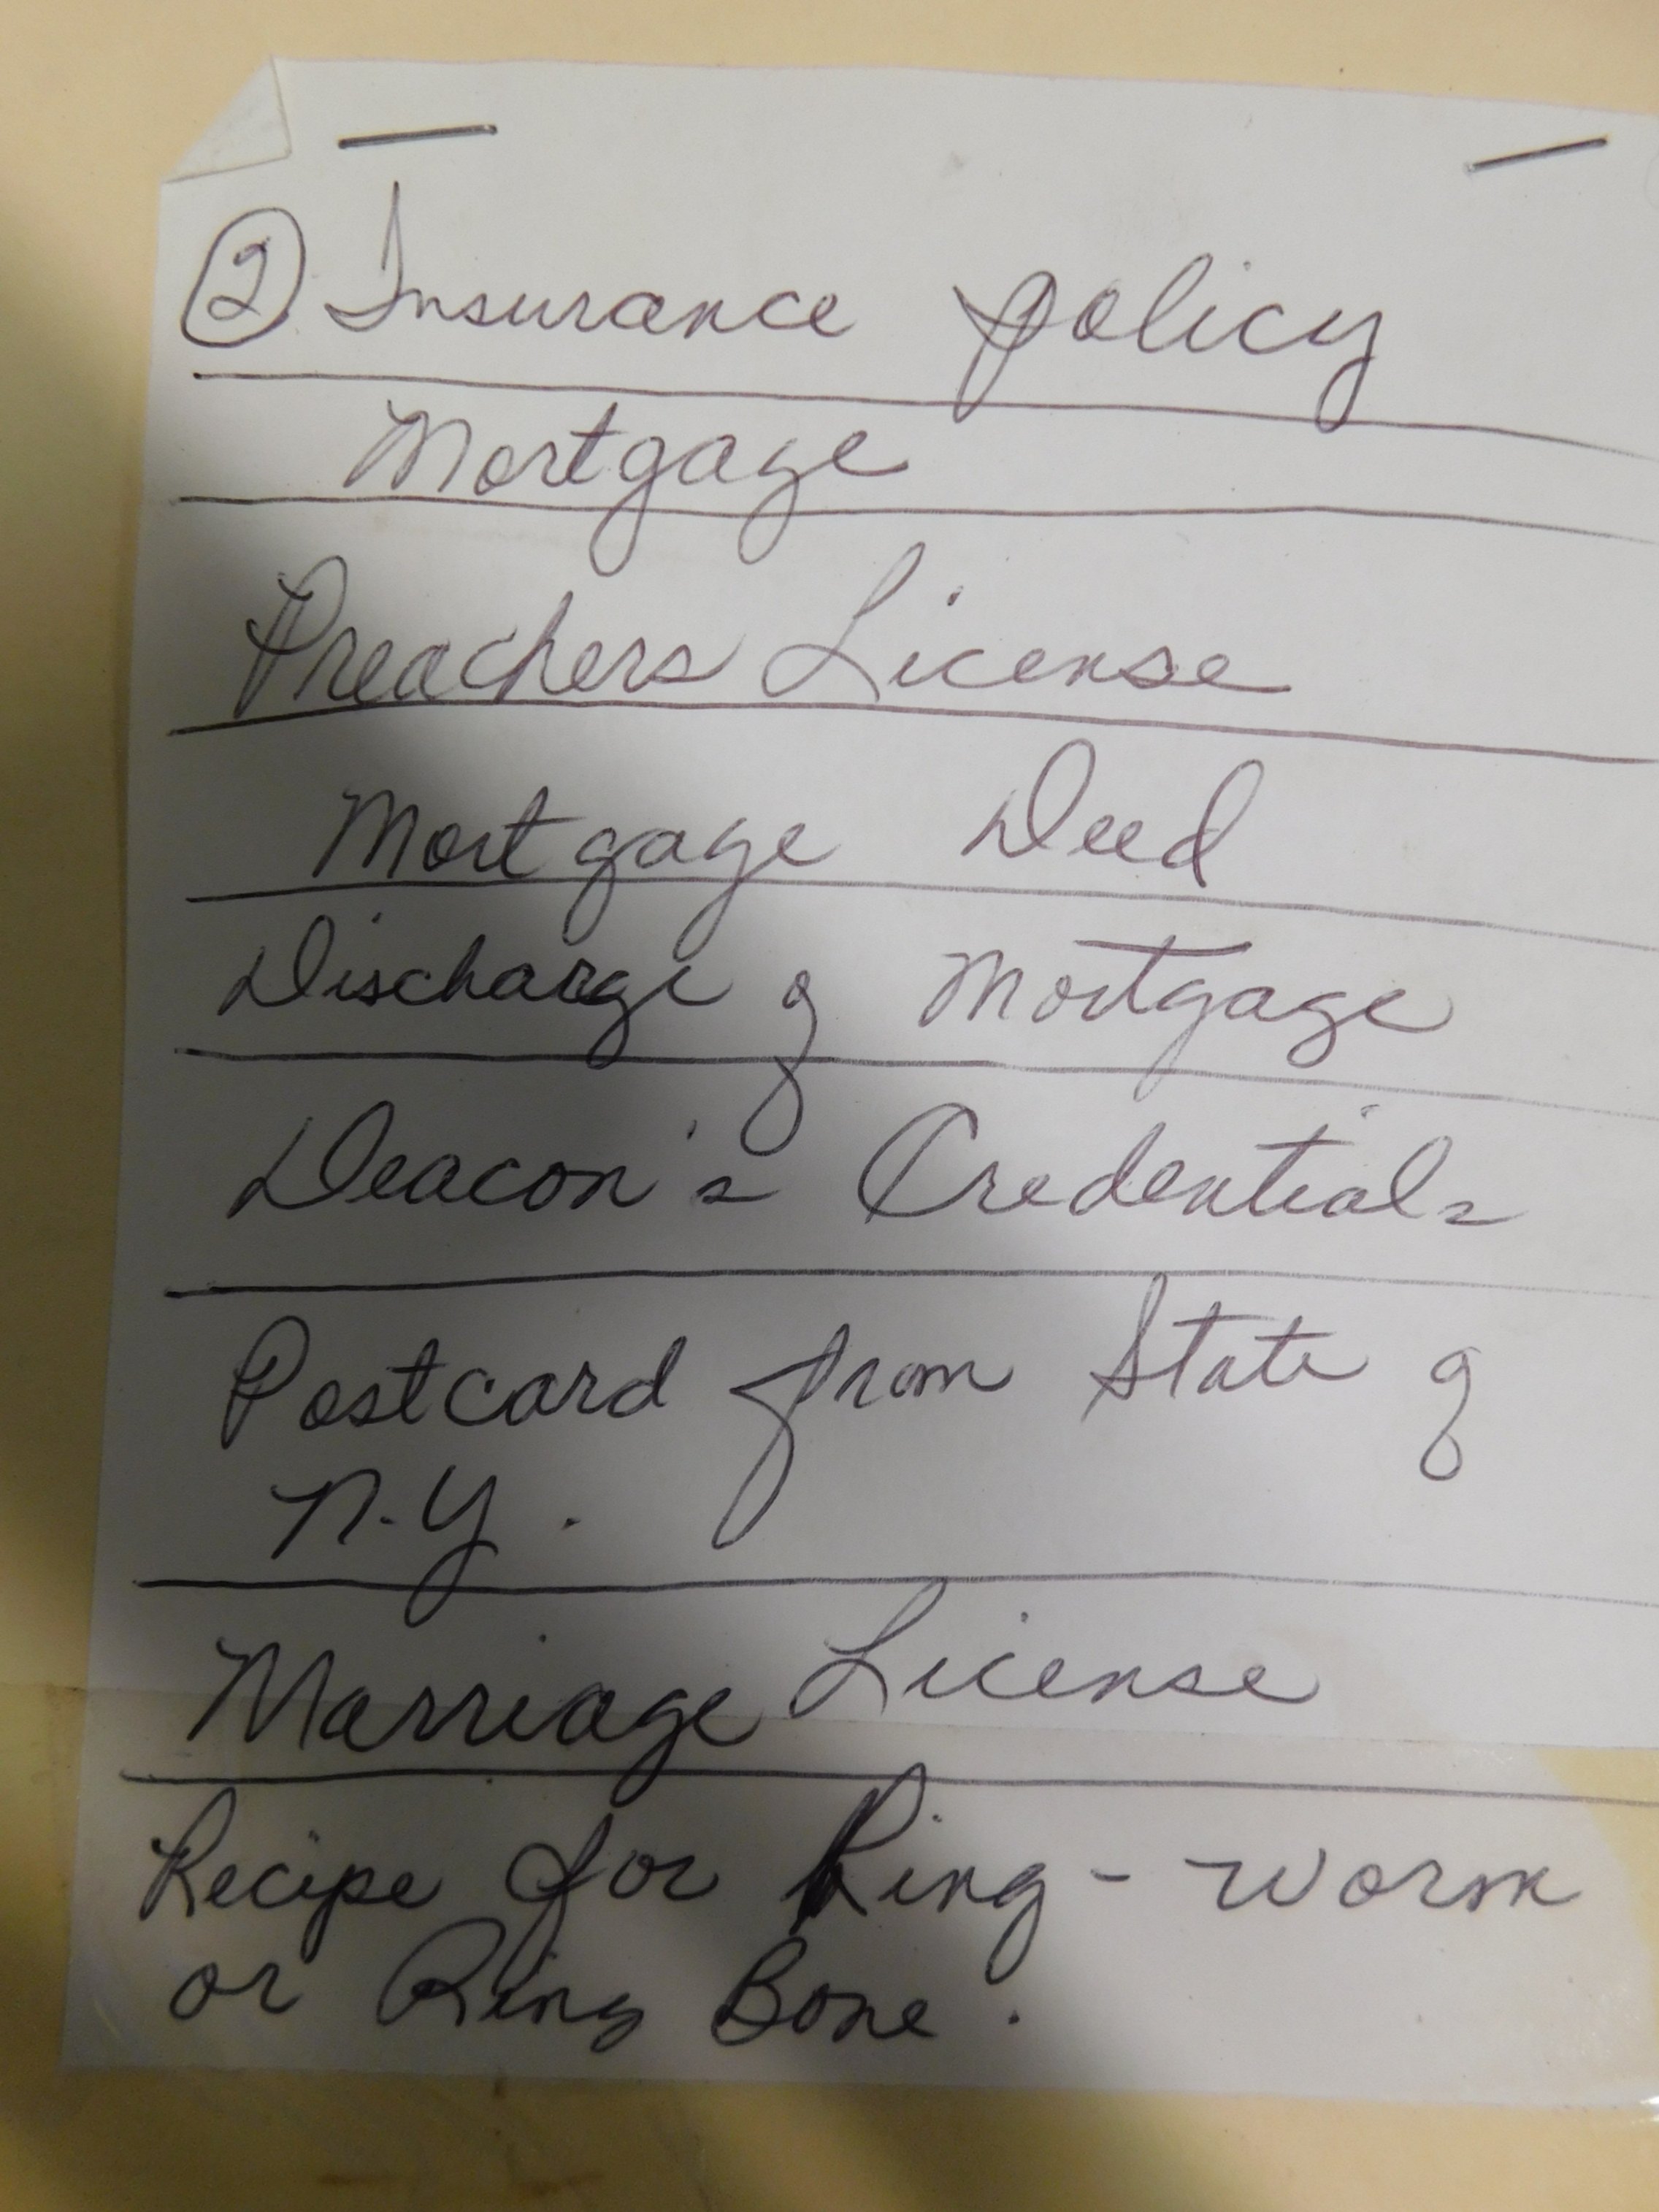 ② Insurance policy
Mortgage
Preachers License
Mortgage Deed
Discharge of Mortgage
Deacon's Credentials
Postcard from State of
N.Y.
Marriage License
Recipe for Ring-worm
or Ring Bone.